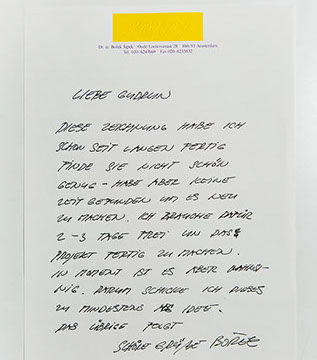 Dr. ir. Bořek Šípek / Oude Looiersstraat 28 / 1016 VJ Amsterdam
Tel. 020-6243669 / Fax 020-6235632
LIEBE GUDRUN
DIESE ZEICHNUNG HABE ICH
SCHON SEIT LANGEN FERTIG
FINDE SIE NICHT SCHÖN
GENUG – HABE ABER KEINE
ZEIT GEFUNDEN UM ES NEU
ZU MACHEN. ICH BRAUCHE DAFÜR
2–3 TAGE FREI UN DAS
PROJEKT FERTIG ZU MACHEN.
IN MOMENT IST ES ABER WAHNSI-
NIG. DARUM SCHICKE ICH DIESES
ZU MINDESTENS ALS IDEE.
DAS ÜBRIGE FOLGT
SCHÖNE GRÜßE BOŘEK